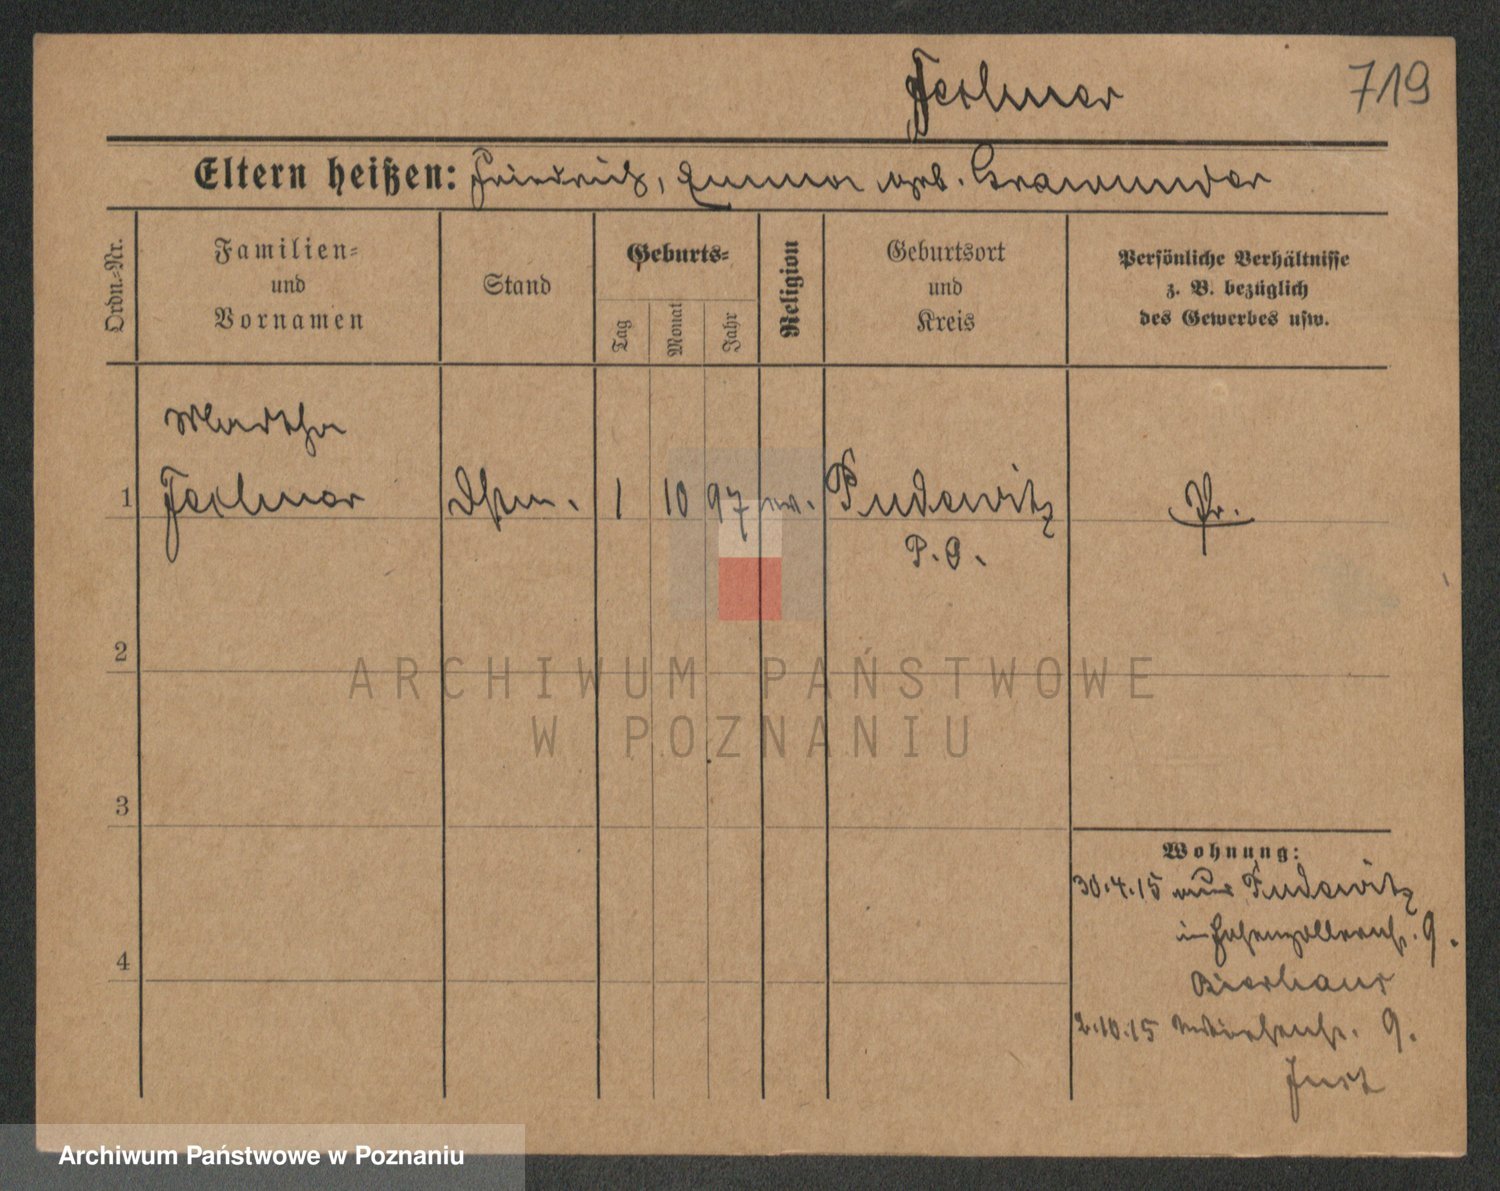 Fechner
719
Eltern heißen: Friedrich, Emma geb. Grawunder
Ordn.-Nr.
Familien-
und
Vornamen
Stand
Geburts-
Tag
Monat
Jahr
Religion
Geburtsort
und
Kreis
Persönliche Verhältnisse
z. B. bezüglich
des Gewerbes usw.
Martha
1 Fechner Dstm. 1 10 97 ev. Pudewitz Pr.
P. O.
2
3
4
Wohnung:
30.4.15 aus Pudewitz
in Hohenzollernstr. 9.
Bierhaus
2.10.15 9.
Just
ARCHIWUM PAŃSTWOWE
W POZNANIU
Archiwum Państwowe w Poznaniu